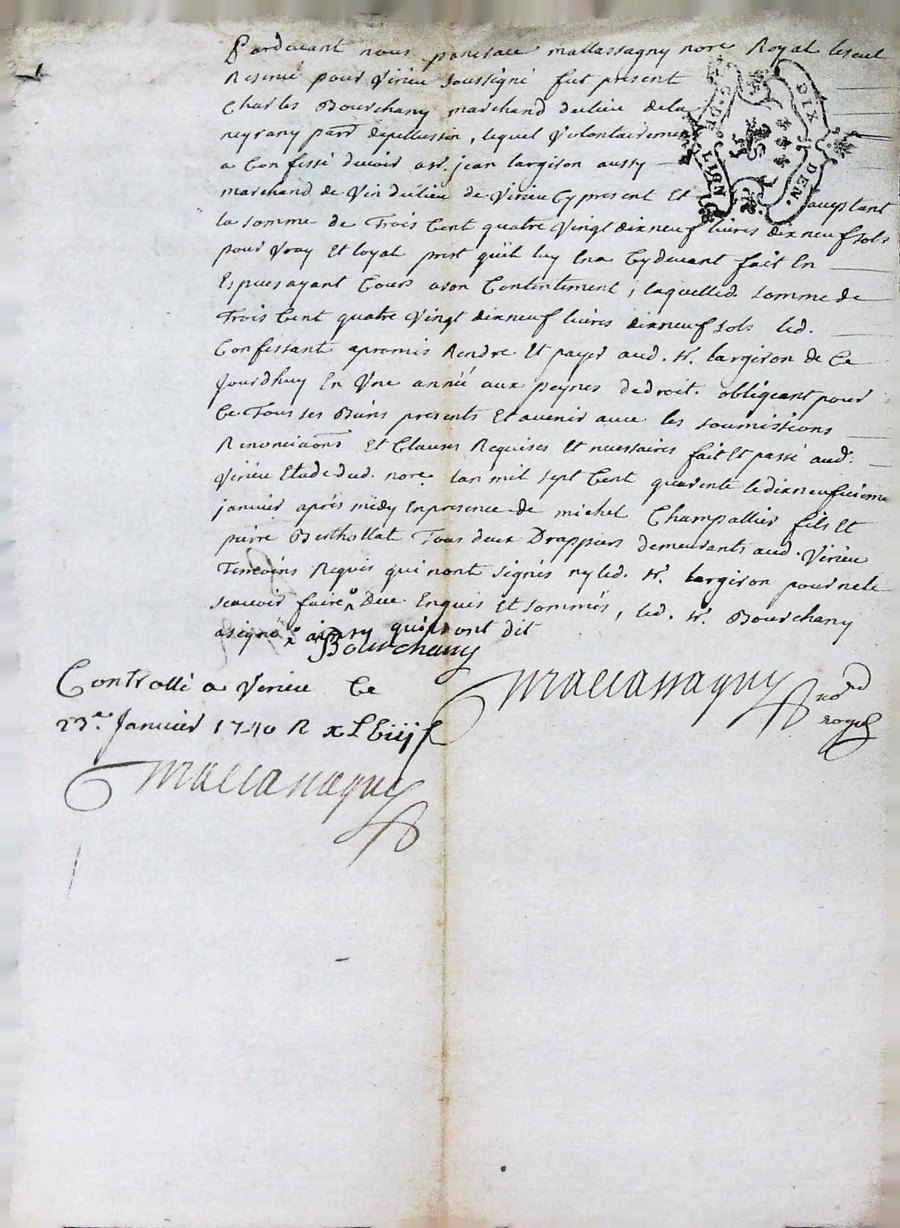 Pardevant nous mallassagny nore Royal
Reservé pour Virieu soussigné fut present
Charles Bourchany marchand dulieu dela
neyrany parr depellussin, lequel Volontairement
a Confessé devoir a sr. jean largiron aussy
marchand de Vin dulieu de Virieu Cy present Et acceptant
la somme de Trois Cent quatre Vingt dixneuf livres dixneuf sols
pour Vray Et loyal prest quil luy Cydevant fait En
Especes ayant Cours a son Contentement, laquelled. somme de
Trois Cent quatre Vingt dixneuf livres dixneuf sols led.
Confessant apromis Rendre Et payer aud. sr. largiron de Ce
Jourdhuy En Une année aux peynes dedroit. obligeant pour
Ce Tous ses Biens presents Et avenir avec les soumissions
Renonciaons Et Clauses Requises Et necessaires fait Et passé aud.
Virieu Etude dud. nore. lan mil sept Cent quarente le dixneufvieme
janvier aprés midy En presence de michel Champallier fils Et
pierre Berthollat Tous deux Drappiers demeurants aud. Virieu
Temoins Requis qui nont signés ny led. sr. largiron pour ne le
scavoir faire De Ce Enquis Et sommés, led. sr. Bourchany
asigné ainsy quils ont dit
Bourchany
Controllé a Virieu Ce
23e. Janvier 1740 R
G. DE LION
DIX DEN.